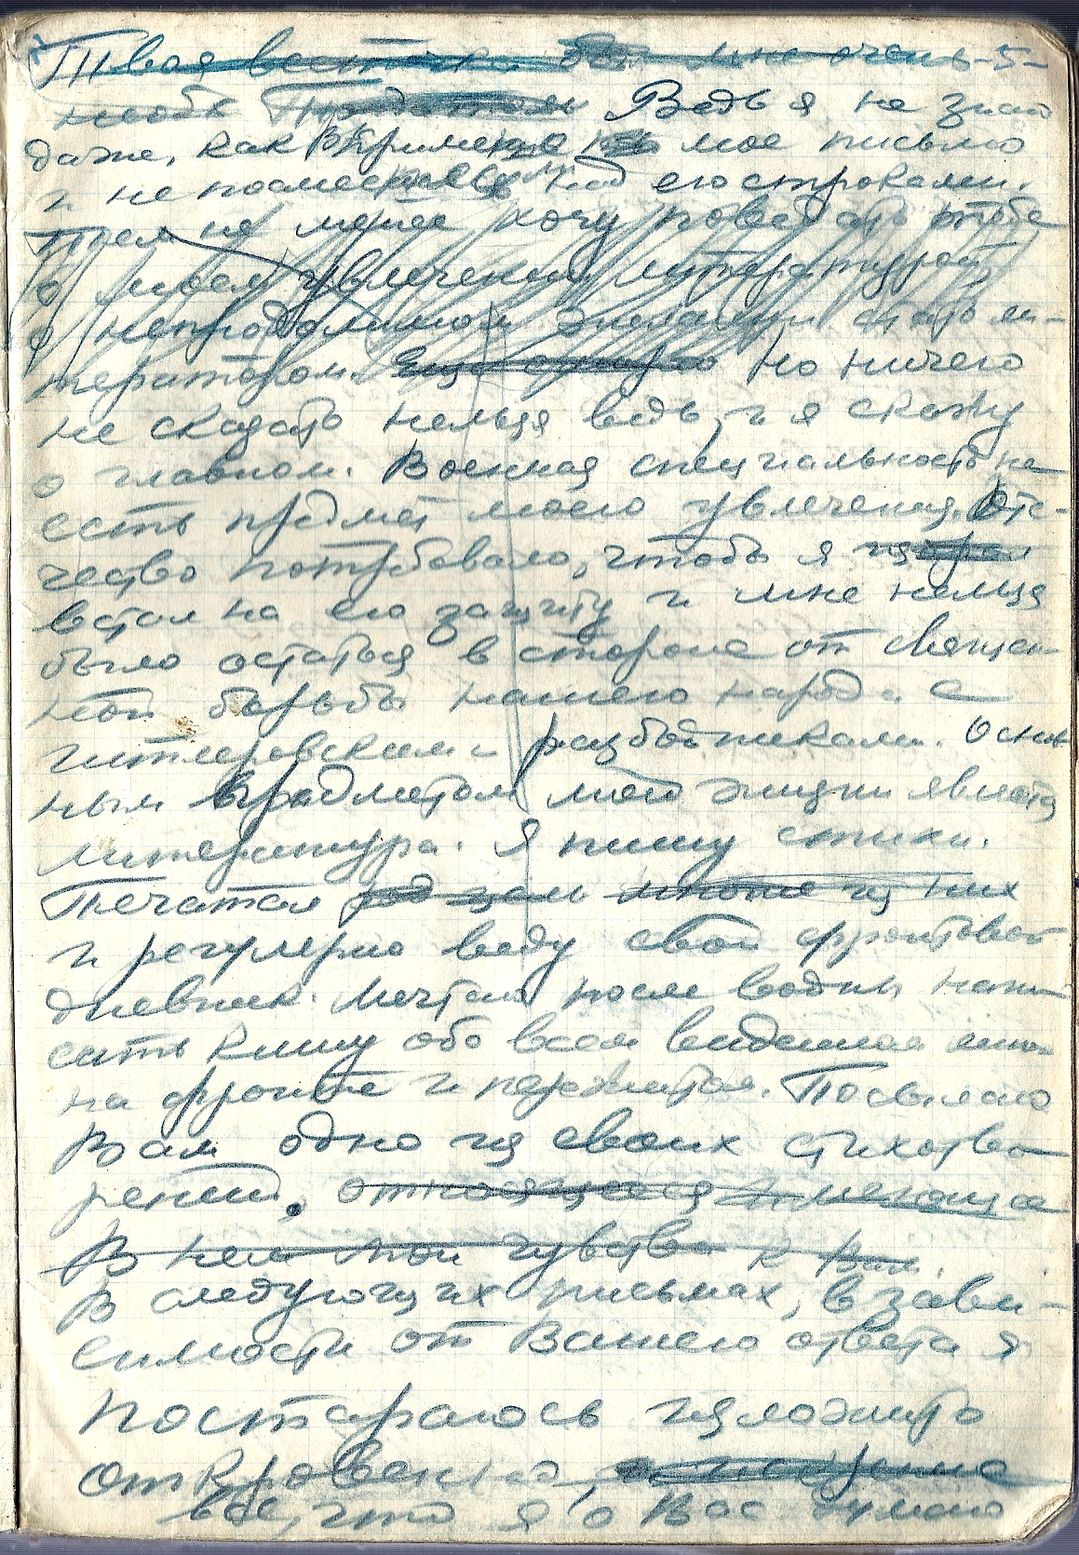 Твоя весточка мне очень -5-
Ведь я не знаю
даже, как Вы примете мое письмо
и не посмеетесь ли над его строками.
Тем не менее хочу поведать тебе
о моем увлечении литературой,
о непреодолимом желании стать ли-
тератором. Но ничего
не сказать нельзя ведь, и я скажу
о главном. Военная специальность не
есть предмет моего увлечения. Оте-
чество потребовало, чтобы я
встал на его защиту и мне нельзя
было остаться в стороне от священ-
ной борьбы нашего народа с
гитлеровскими разбойниками. Основ-
ным предметом моей жизни является
литература. Я пишу стихи.
Печатал многие из них
и регулярно веду свой фронтовой
дневник. Мечтаю после войны напи-
сать книгу обо всем виденном мною
на фронте и пережитом. Посылаю
Вам одно из своих стихотво-
рений,
В нем мои чувства к Вам.
В следующих письмах, в зави-
симости от Вашего ответа я
постараюсь изложить
откровенно,
все, что я о Вас думаю